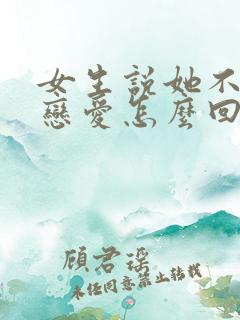 女生說她不
戀愛怎麼回
顧君瑤
未經同意禁止轉載